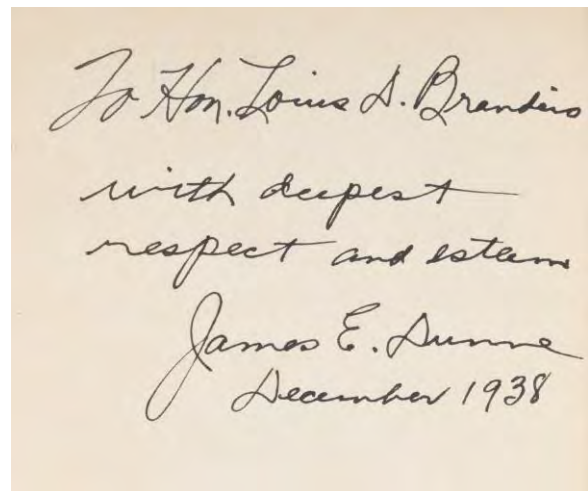 To Hon. Louis D. Brandeis
with deepest
respect and esteem
James E. Dunne
December 1938